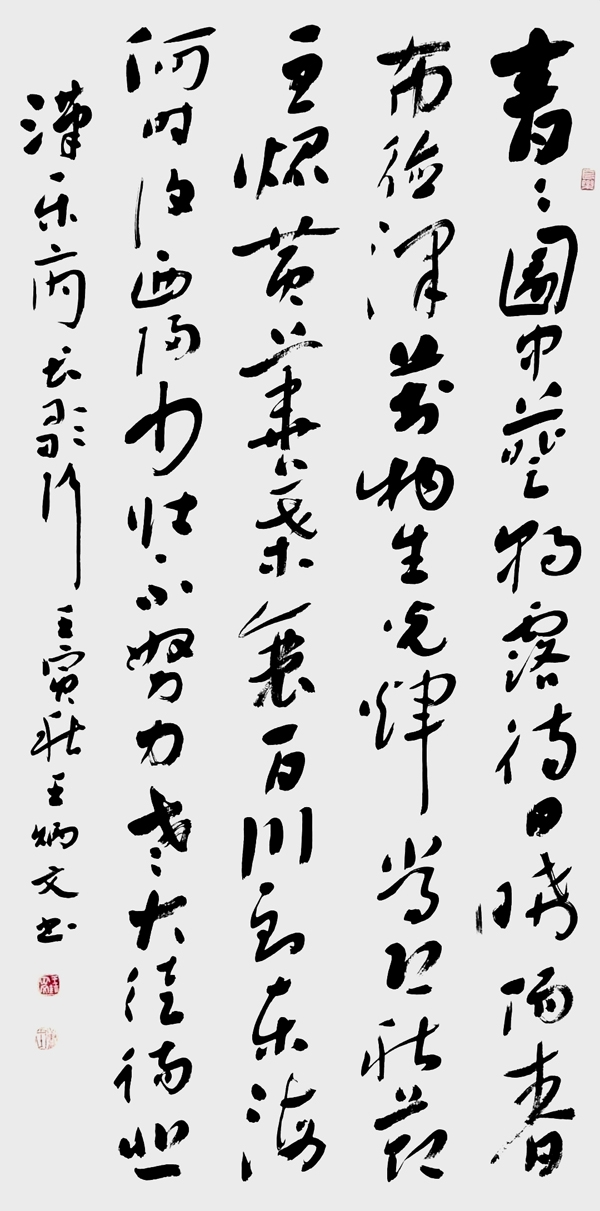 青青園中葵朝露待日晞陽春
布德澤萬物生光煇常恐秋節
至焜黄華葉衰百川到東海
何时復西歸少壮不努力老大徒傷悲
漢乐府长歌行 壬寅秋王炳文书